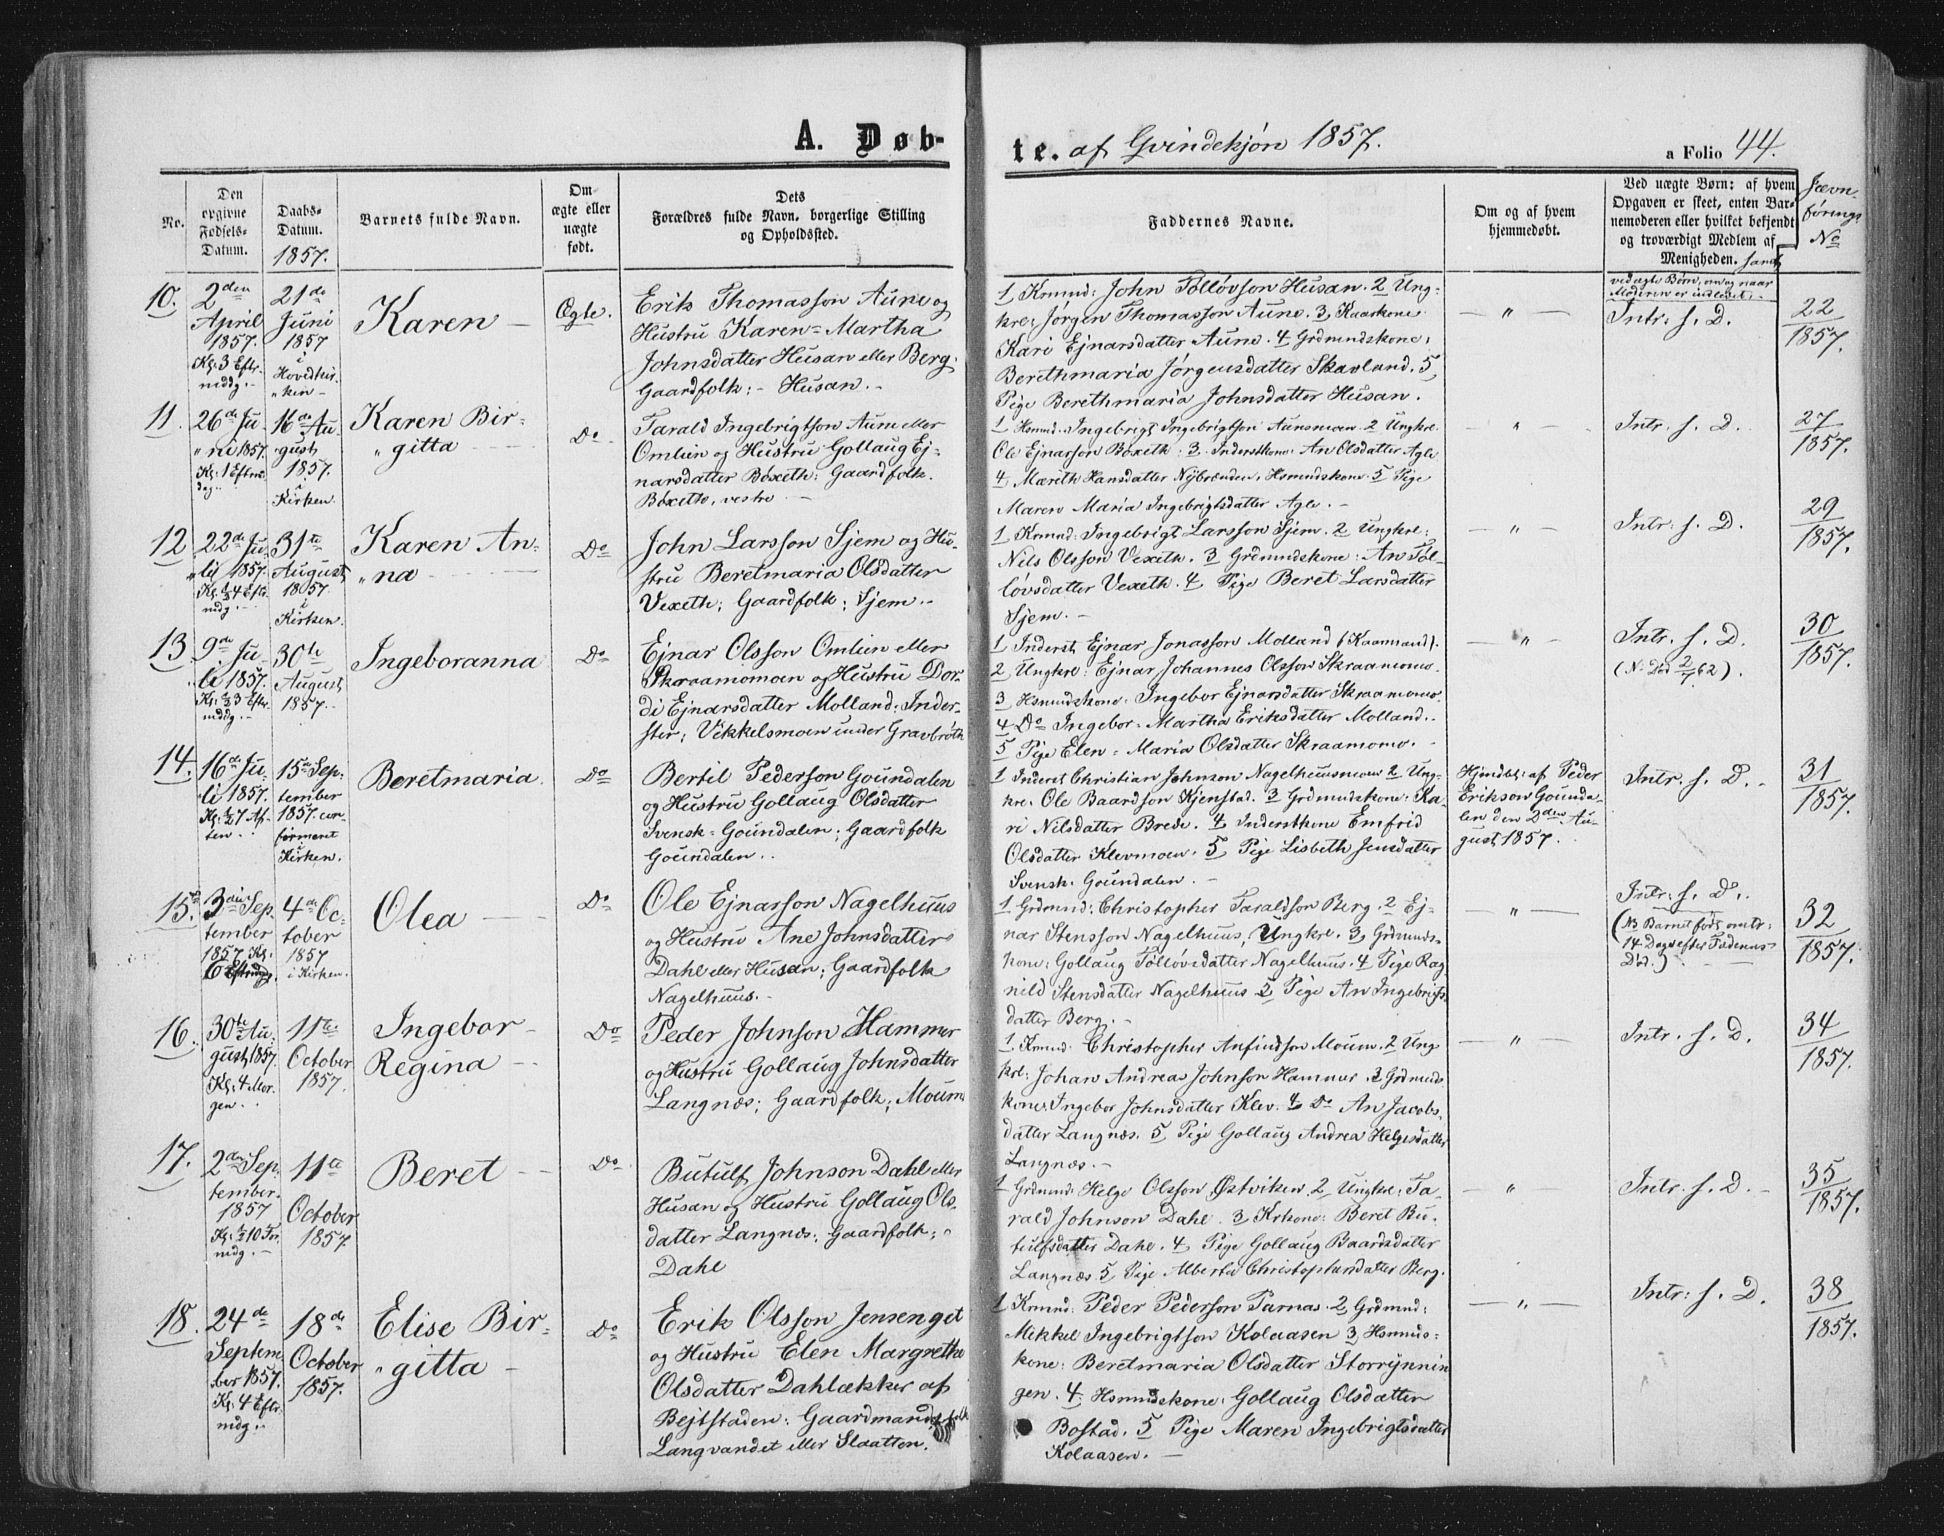 A. Døb-
te. af Qvindekjøn 1857.
a Folio 44.
No.
Den
opgivne
Fødsels-
Datum.
Daabs-
Datum.
1857.
Barnets fulde Navn.
Om
ægte eller
uægte
født.
Dets
Forældres fulde Navn, borgerlige Stilling
og Opholdssted.
Faddernes Navne.
Om og af hvem
hjemmedøbt.
Ved uægte Børn: af hvem
Opgaven er skeet, enten Bar-
nemoderen eller hvilket bekjendt
og troværdigt Medlem af
Menigheden. samt
ved ægte Børn, om og naar
Moderen er indledet.
Jævn-
førings
No
10.
2den
April
1857.
Kl: 3 Eftr-
mddg.-
21de
Juni
1857
i
Hovedkir-
"ken-
Karen -
Ægte.
Erik Thomasson Aune og
Hustru Karen=Martha
Johnsdatter Husan eller Berg.
Gaardfolk: - Husan.-
1 Krmnd: John Tølløvson Husan. 2 Ung-
kre: Jørgen Thomasson Aune. 3 Kaarkone
Kari Ejnarsdatter Aune. 4 Grdmndskone:
Berethmaria Jørgensdatter Skavland. 5
Pige Berethmaria Johnsdatter Husan.
— " —
Intr: s. D.
22
1857.
11.
26de Ju-
"ni 1857.
Kl: 1 Eftrm-
dag.
16de Au-
"gust
1857.
i
Kirken.
Karen Bir-
"gitta
Do
Tarald Ingebrigtson Aune eller
Omlien og Hustru Gollaug Ej-
narsdatter Böxeth: Gaardfolk.
Böxette, vestre. -
1 Hsmnd: Ingebrigt Ingebrigtson Aunsmoen. 2 Ungkre.
Ole Ejnarson Böxeth. 3. Inderstkone. An Olsdatter Agle
4 Mærith Hansdatter Nÿbrænden, Hsmndskone. 5 Pige
Maren Maria Ingebrigtsdatter Agle. -
— " —
Intr. s. D.
27
1857.
12
22de Ju-
"li 1857.
Kl: ½4 Eftr.
mdg.-
31te
August
1857.
i
Kirken.
Karen An-
"na
Do
John Larsson Sjem og Hu-
stru Beretmaria Olsdatter
Vexeth; Gaardfolk; Sjem.-
1 Krmnd: Ingebrigt Larsson Sjem. 2 Ungkre:
Nils Olsson Vexeth. 3 Grdmndskone: An Töl-
løvsdatter Vexeth. 4 Pige Beret Larsdatter
Sjem. -
— " —
Intr: s. D.
29
1857.
13
9de Ju-
li 1857.
Kl: ½3 Eftr.
mddg.-
30te
August
1857.
Ingeboranna
Do
Ejnar Olsson Omlien eller
Skraamomoen og Hustru Dor-
di Ejnarsdatter Molland. Inder-
ster; Vekkelsmoen under Gravbröth
1 Inderst Ejnar Jonasson Molland (Kaarmand).
2 Ungkre: Ejnar Johannes Olsson Skraamomo.
3 Hsmndskone: Ingebor Ejnarsdatter Skraamomo
4 Do Ingebor=Martha Eriksdatter Molland.
5 Pige Elen=Maria Olsdatter Skraamomo. -
— " —
Intr. s. D.
30
1857.
14.
16de Ju-
li 1857.
Kl: ½7 Af-
ten.
15de Sep-
tember
1857. con-
firment
i
Kirken.
Beretmaria.
Do
Bertil Pederson Gøundalen
og Hustru Gollaug Olsdatter
Svensk=Goundalen; Gaardfolk
Goundalen.
1 Inderst Christian Johnson Nagelhuusmoen 2 Ung-
kre. Ole Baardson Kjenstad. 3 Grdmndskone: Ka-
ri Nilsdatter Brede. 4 Inderstkone Emfrid
Olsdatter Klevmoen. 5 Pige Lisbeth Jensdatter
Svensk. Goundalen. -
Hjmdbt: af Peder
Erikson Gounda-
len den 2den Au-
gust 1857.
Intr: s. D. -
31
1857.
15.
3die Sep-
tember
1857 Kl:
6 Eftrmdg.
4de Oc-
tober
1857
i Kirken.
Olea
Do
Ole Ejnarson Nagelhuus
og Hustru Ane Johnsdatter
Dahl eller Husan; Gaardfolk
Nagelhuus.-
1 Grdmnd: Christopher Taraldson Berg. 2 Ej-
nar Stensson Nagelhuus, Ungkre. 3 Grdmnds-
kone: Gollaug Tølløvsdatter Nagelhuus. 4 Pige Rag-
nild Stensdatter Nagelhuus 5 Pige An Ingebrigts-
datter Berg. -
— " —
Intr: s. D.
(NB Barnet født omtr:
14 Dage efter Faderens
Død.)
32
1857.
16
30te Au-
gust 1857
Kl: 4 Mor-
gen.
11te
October
1857.
Ingebor-
Regina
Do
Peder Johnson Hammer
og Hustru Gollaug Johnsdatter
Langnæs; Gaardfolk; Moum
1 Krmnd. Christopher Anfindson Moum. 2 Ung
kre: Johan Andreas Johnson Hammer. 3 Grdmnds
kone. Ingebor Johnsdatter Klev. 4 Do An Jacobs-
datter Langnæs. 5 Pige Gollaug Andrea Helgesdatter
Langnæs. -
— " —
Intr: s. D.
34
1857.
17.
2den Sep-
tember.
1857
Kl: ½10 For-
mdg.-
11te
October
1857.
Beret
Do
Butulf Johnson Dahl eller
Husan og Hustru Gollaug Ols-
datter Langnæs; Gaardfolk;
Dahl
1 Grdmnd: Helge Olsson Østviken. 2 Ungkre: Ta-
rald Johnson Dahl. 3 Krkone: Beret Bu-
tulfsdatter Dahl. 4 Pige Gollaug Baardsdatter
Langnæs 5 Pige Alberta Christophersdatter Berg.
— " —
Intr: s. D. -
35
1857.
18.
24de
Septem-
ber 1857.
Kl. 4 Eftr.
mdg..
18de
October
1857.
Elise Bir-
"gitta
Do
Erik Olsson Jensenget
og Hustru Elen Margrethe
Olsdatter Dahlækker af
Bejtstaden: Gaardmandsfolk
Langvandet eller Slaatten.
1 Krmnd: Peder Pederson Parnas. 2 Grdmnd:
Mikkel Ingebrigtson Kolaasen 3 Hsmnds-
kone: Beretmaria Olsdatter Storrÿnnin
gen. 4. Hsmndskone: Gollaug Olsdatter
Bostad. 5 Pige Maren Ingebrigtsdatter
Kolaasen. -
— " —
Intr: s. D.
38
1857.